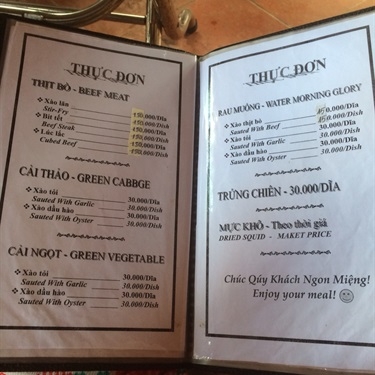 THỰC ĐƠN
THỊT BÒ - BEEF MEAT
❖ Xào lăn 150.000/Dĩa
Stir-Fry 150.000/Dish
❖ Bít tết 150.000/Dĩa
Beef Steak 150.000/Dish
❖ Lúc lắc 150.000/Dĩa
Cubed Beef 150.000/Dish
CẢI THẢO - GREEN CABBGE
❖ Xào tỏi 30.000/Dĩa
Sauted With Garlic 30.000/Dish
❖ Xào dầu hào 30.000/Dĩa
Sauted With Oyster 30.000/Dish
CẢI NGỌT - GREEN VEGETABLE
❖ Xào tỏi 30.000/Dĩa
Sauted With Garlic 30.000/Dish
❖ Xào dầu hào 30.000/Dĩa
Sauted With Oyster 30.000/Dish
THỰC ĐƠN
RAU MUỐNG - WATER MORNING GLORY
❖ Xào thịt bò 0.000/Dĩa
Sauted With Beef 0.000/Dish
❖ Xào tỏi 30.000/Dĩa
Sauted With Garlic 30.000/Dish
❖ Xào dầu hào 30.000/Dĩa
Sauted With Oyster 30.000/Dish
TRỨNG CHIÊN - 30.000/DĨA
MỰC KHÔ - Theo thời giá
DRIED SQUID - MAKET PRICE
Chúc Qúy Khách Ngon Miệng!
Enjoy your meal! ☺